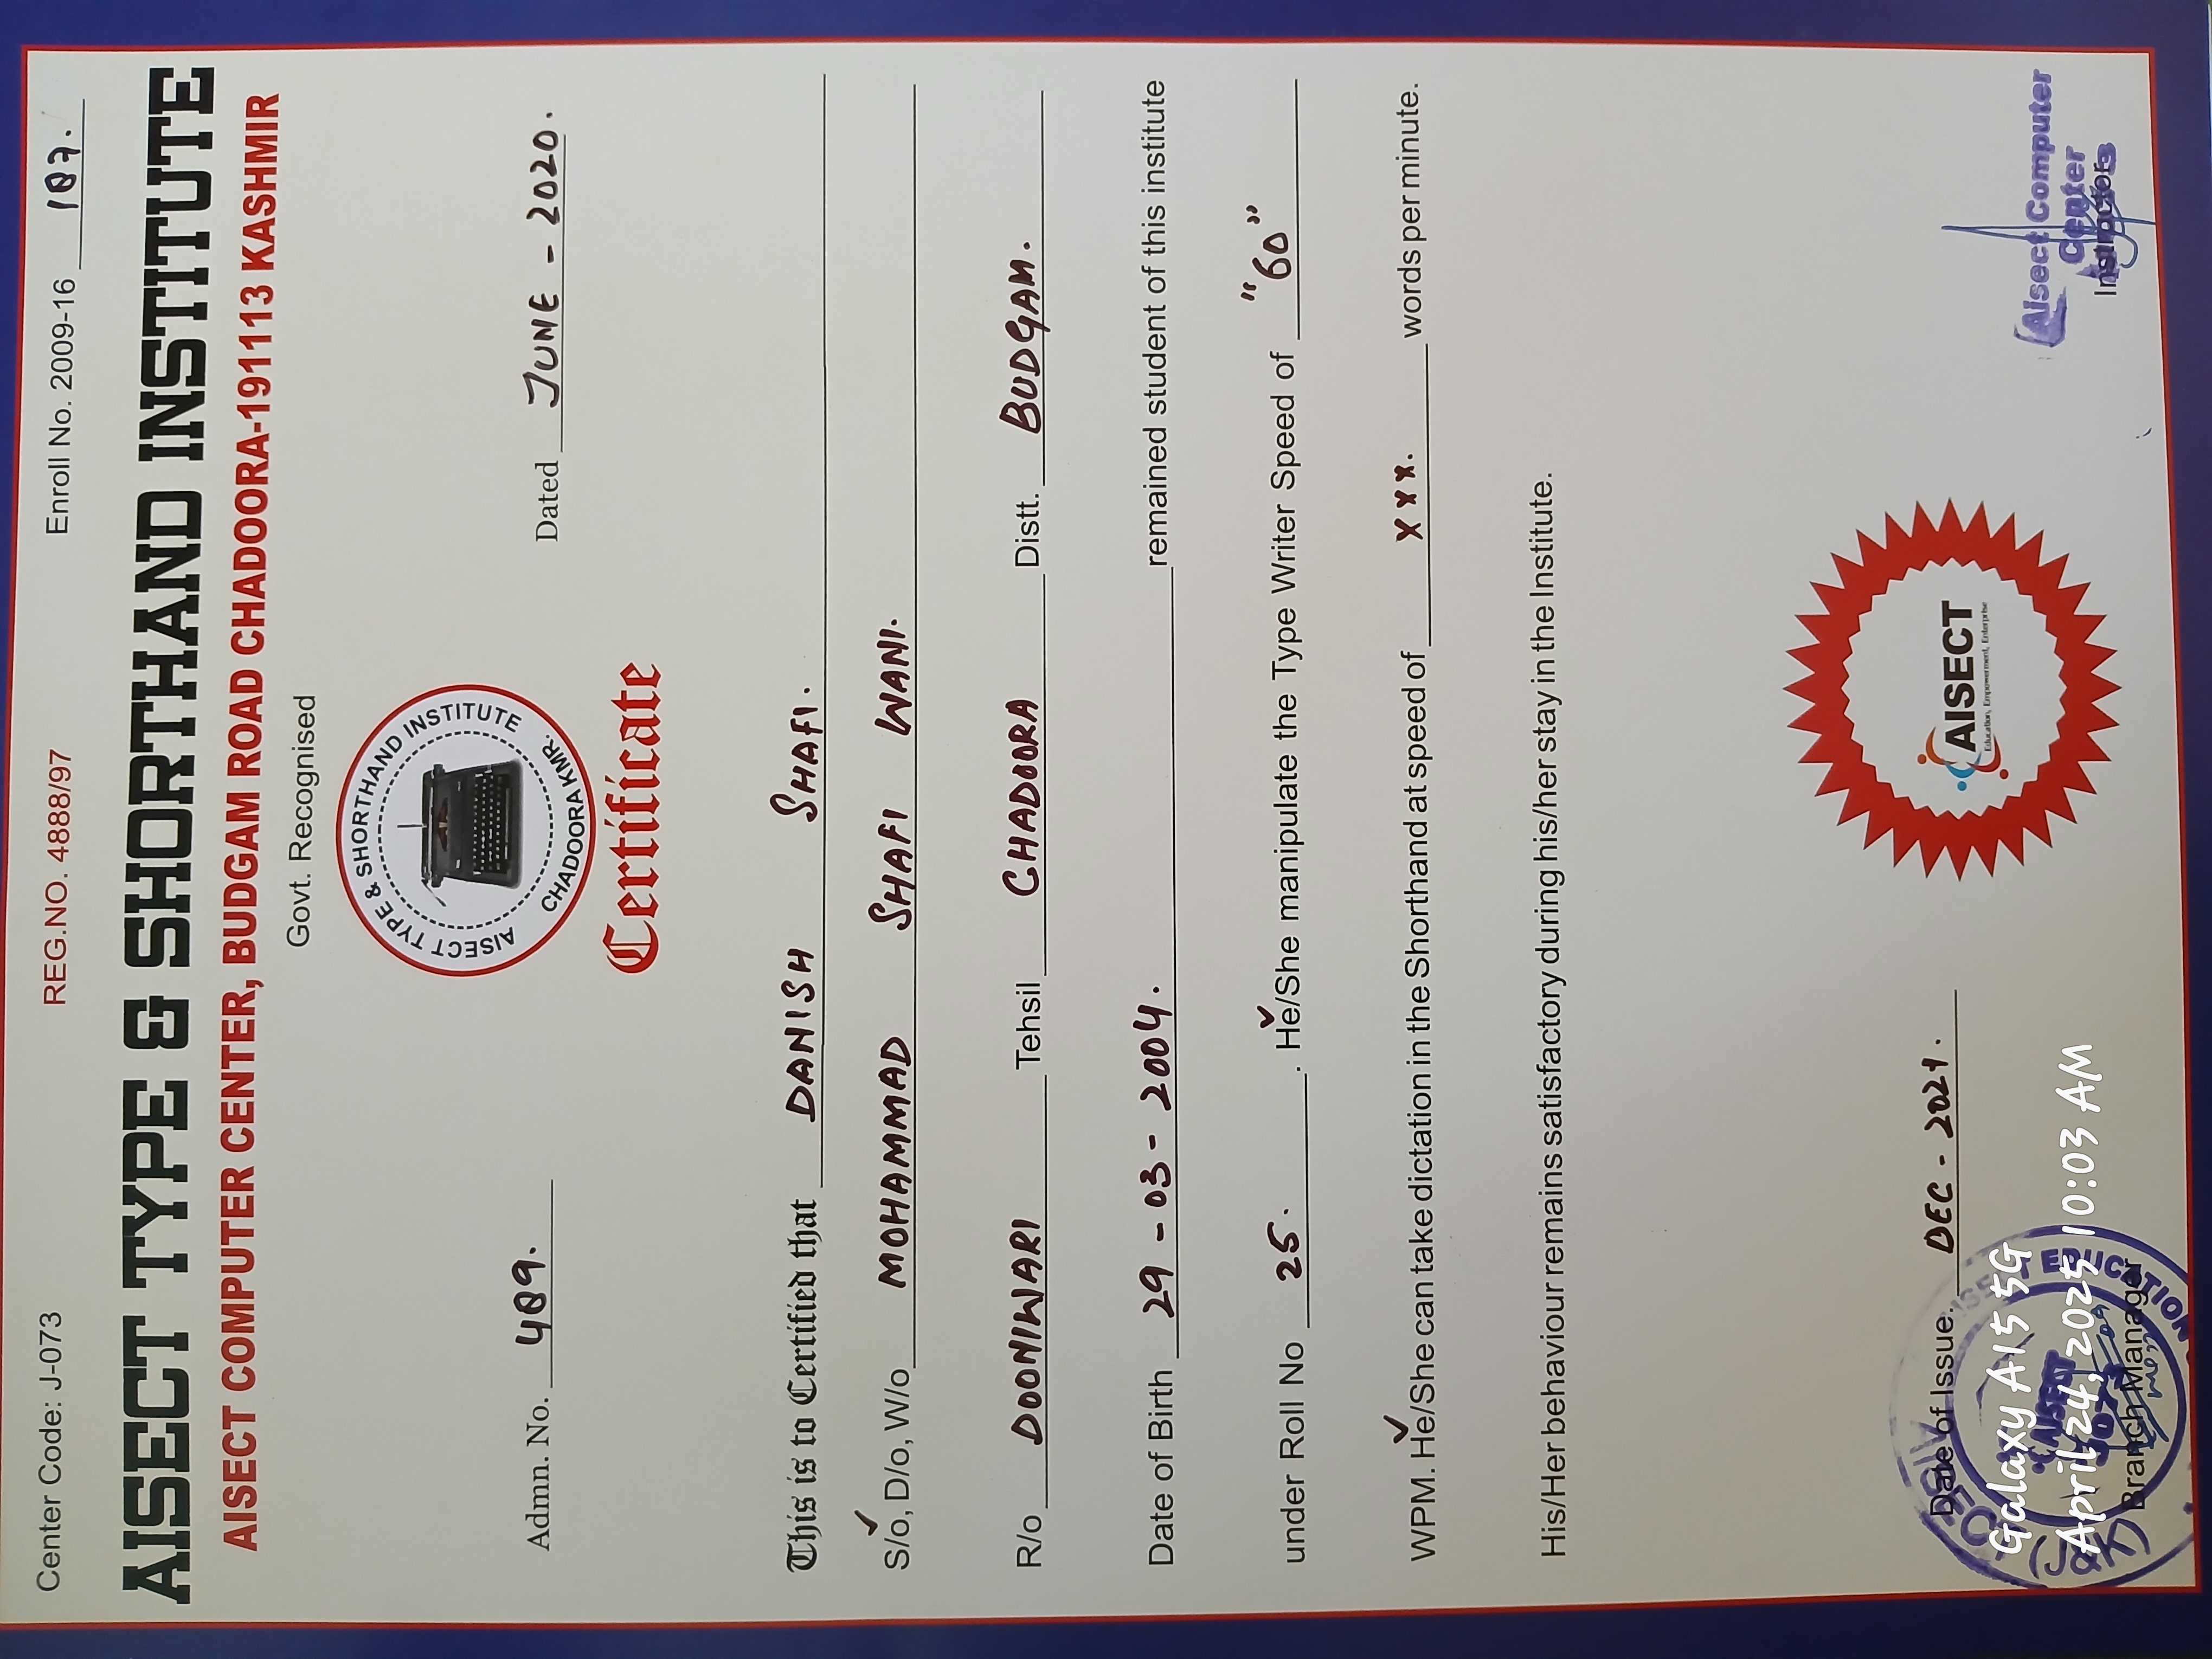 Center Code: J-073 REG.NO. 4888/97 Enroll No. 2009-16 187.
AISECT TYPE & SHORTHAND INSTITUTE
AISECT COMPUTER CENTER, BUDGAM ROAD CHADOORA-191113 KASHMIR
Govt. Recognised
AISECT TYPE & SHORTHAND INSTITUTE
CHADOORA KMR.
Admn. No. 489. Dated JUNE - 2020.
Certificate
This is to Certified that DANISH SHAFI.
S/o, D/o, W/o MOHAMMAD SHAFI WANI.
R/o DOONIWARI Tehsil CHADOORA Distt. BUDGAM.
Date of Birth 29-03-2004. remained student of this institute
under Roll No 25. . He/She manipulate the Type Writer Speed of "60"
WPM. He/She can take dictation in the Shorthand at speed of xxx. words per minute.
His/Her behaviour remains satisfactory during his/her stay in the Institute.
AISECT
Education, Empowerment, Enterprise
Date of Issue. DEC - 2021.
Aisect Computer
Center
Branch Manager Instructor
EDUCATION
(J&K)
Galaxy A15 5G
April 24, 2025 10:03 AM